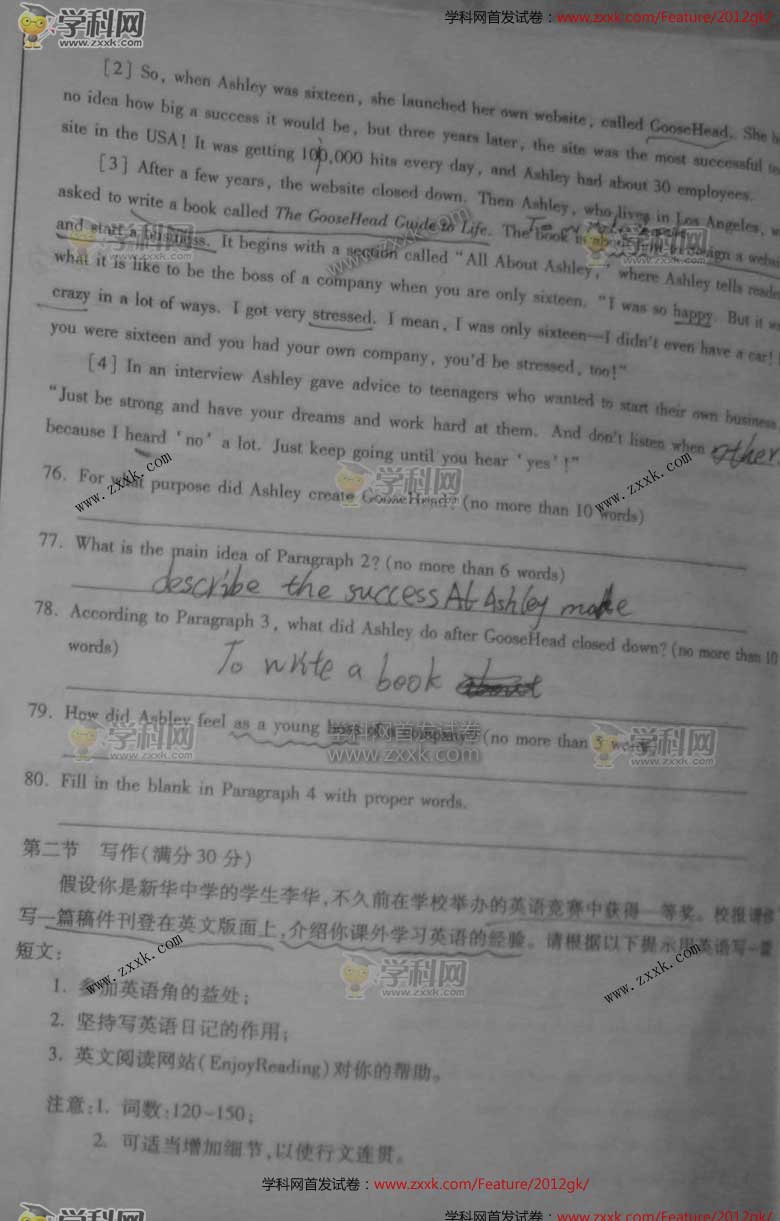 学科网首发试卷：www.zxxk.com/Feature/2012gk/
学科网
www.zxxk.com
[2] So, when Ashley was sixteen, she launched her own website, called GooseHead. She
no idea how big a success it would be, but three years later, the site was the most successful
site in the USA! It was getting 100,000 hits every day, and Ashley had about 30 employees.
[3] After a few years, the website closed down. Then Ashley, who lives in Los Angeles,
asked to write a book called The GooseHead Guide to Life. The book is design a
and start a business. It begins with a section called "All About Ashley," where Ashley tells
what it is like to be the boss of a company when you are only sixteen. "I was so happy. But it
crazy in a lot of ways. I got very stressed. I mean, I was only sixteen—I didn't even have a car!
you were sixteen and you had your own company, you'd be stressed, too!"
[4] In an interview Ashley gave advice to teenagers who wanted to start their own business.
"Just be strong and have your dreams and work hard at them. And don't listen when other
because I heard 'no' a lot. Just keep going until you hear 'yes'!"
76. For what purpose did Ashley create GooseHead? (no more than 10 words)
77. What is the main idea of Paragraph 2? (no more than 6 words)
describe the success At Ashley make
78. According to Paragraph 3, what did Ashley do after GooseHead closed down? (no more than 10
words)
To write a book
79. How did Ashley feel as a young boss of a company? (no more than 5 words)
学科网首发试卷
www.zxxk.com
80. Fill in the blank in Paragraph 4 with proper words.
第二节 写作(满分30分)
假设你是新华中学的学生李华,不久前在学校举办的英语竞赛中获得一等奖。校报请你
写一篇稿件刊登在英文版面上,介绍你课外学习英语的经验。请根据以下提示用英语写一篇
短文:
1. 参加英语角的益处;
2. 坚持写英语日记的作用;
3. 英文阅读网站(EnjoyReading)对你的帮助。
注意:1. 词数:120~150;
2. 可适当增加细节,以使行文连贯。
学科网首发试卷：www.zxxk.com/Feature/2012gk/